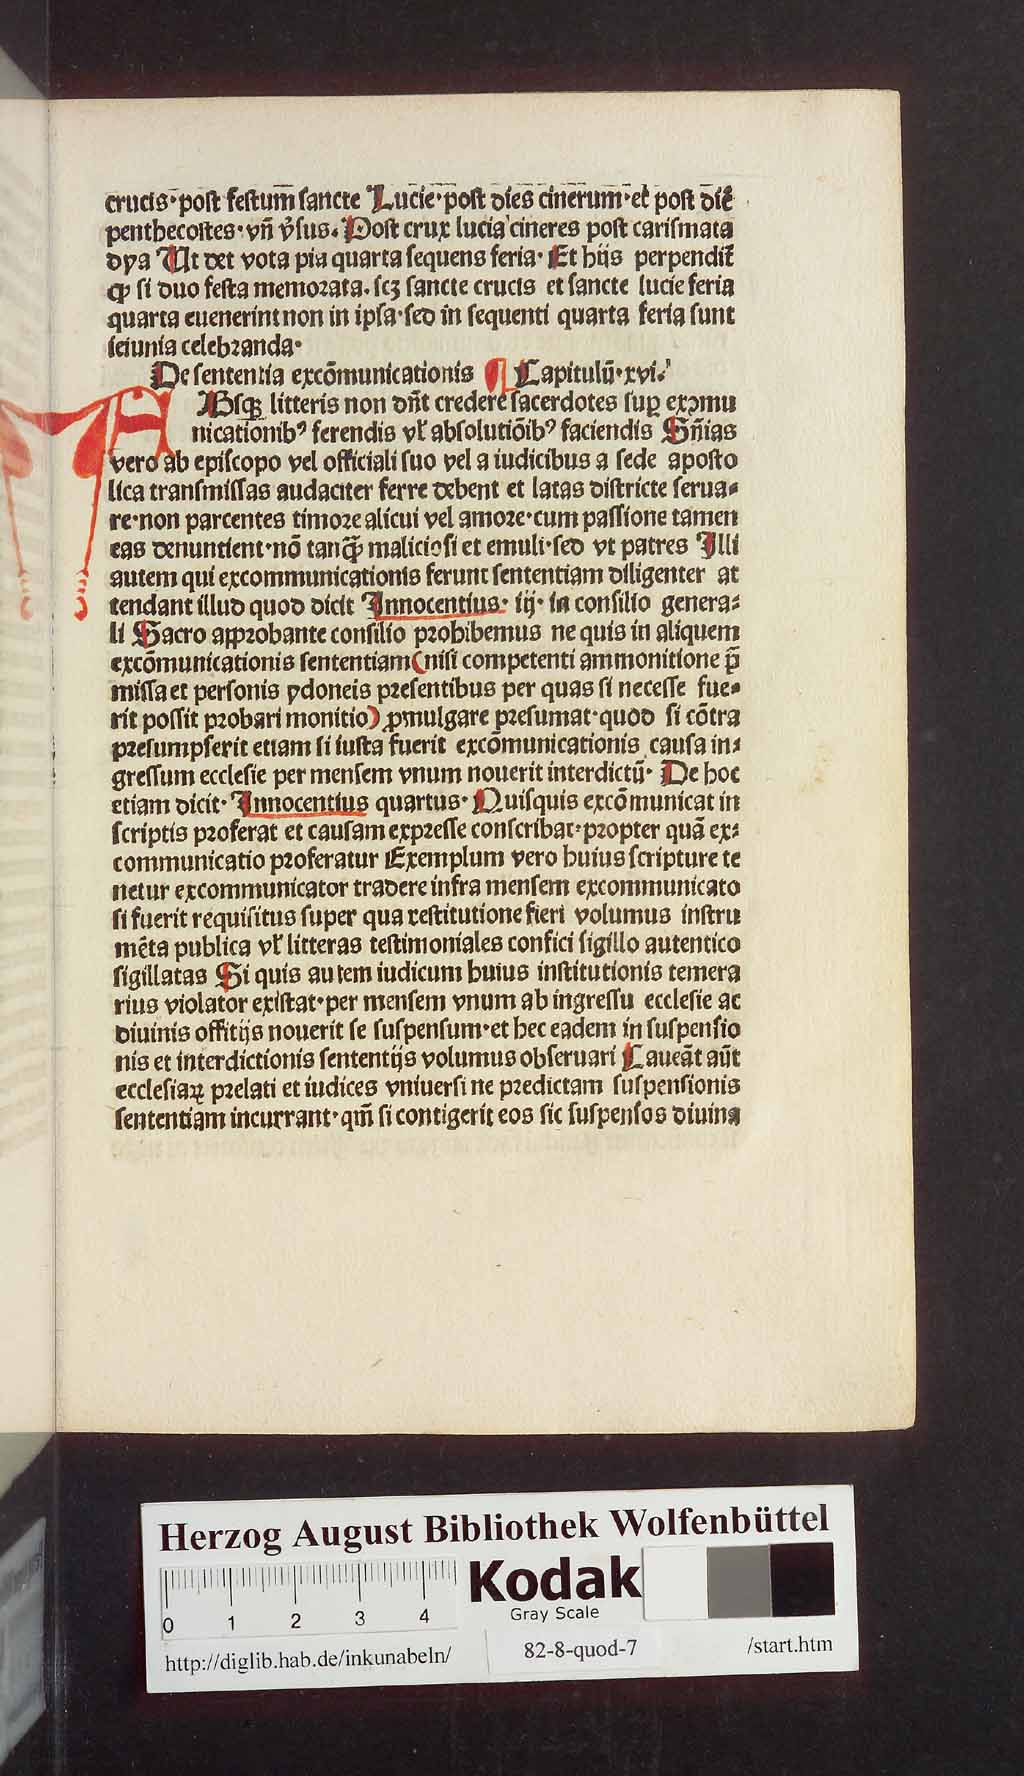 crucis·post festum̄ sancte Lucie·post dies cinerum·et post diē
penthecostes·vn̄ v̉sus. Post crux lucia cineres post carismata
dya Ut det vota pia quarta sequens feria· Et hijs perpendit̄
ꝙ si duo festa memorata. scꝫ sancte crucis et sancte lucie feria
quarta euenerint non in ipsa·sed in sequenti quarta feria sunt
ieiunia celebranda·
De sententia excōmunicationis ¶ Capitulū·xvi·
ABsqꝫ litteris non dn̄t credere sacerdotes suꝑ exꝯmu
nicationibꝰ ferendis vł absolutōibꝰ faciendis Sn̄ias
vero ab episcopo vel officiali suo vel a iudicibus a sede aposto
lica transmissas audaciter ferre debent et latas districte serua⸗
re·non parcentes timore alicui vel amore·cum passione tamen
eas denuntient·nō tanꝙ̄ maliciosi et emuli·sed vt patres Illi
autem qui excommunicationis ferunt sententiam diligenter at
tendant illud quod dicit Innocentius· iij· in consilio genera⸗
li Sacro approbante consilio prohibemus ne quis in aliquem
excōmunicationis sententiam (nisi competenti ammonitione p̄
missa et personis ydoneis presentibus per quas si necesse fue⸗
rit possit probari monitio) ꝓmulgare presumat·quod si cōtra
presumpserit etiam si iusta fuerit excōmunicationis causa in⸗
gressum ecclesie per mensem vnum nouerit interdictū· De hoc
etiam dicit· Innocentius quartus· Quisquis excōmunicat in
scriptis proferat et causam expresse conscribat·propter quā ex⸗
communicatio proferatur Exemplum vero huius scripture te
netur excommunicator tradere infra mensem excommunicato
si fuerit requisitus super qua restitutione fieri volumus instru
mēta publica vł litteras testimoniales confici sigillo autentico
sigillatas Si quis autem iudicum huius institutionis temera
rius violator existat·per mensem vnum ab ingressu ecclesie ac
diuinis offitijs nouerit se suspensum·et hec eadem in suspensio
nis et interdictionis sententijs volumus obseruari Caueāt aūt
ecclesiaꝝ prelati et iudices vniuersi ne predictam suspensionis
sententiam incurrant·qm̄ si contigerit eos sic suspensos diuina
Herzog August Bibliothek Wolfenbüttel
0 1 2 3 4
Kodak
Gray Scale
http://diglib.hab.de/inkunabeln/
82-8-quod-7
/start.htm